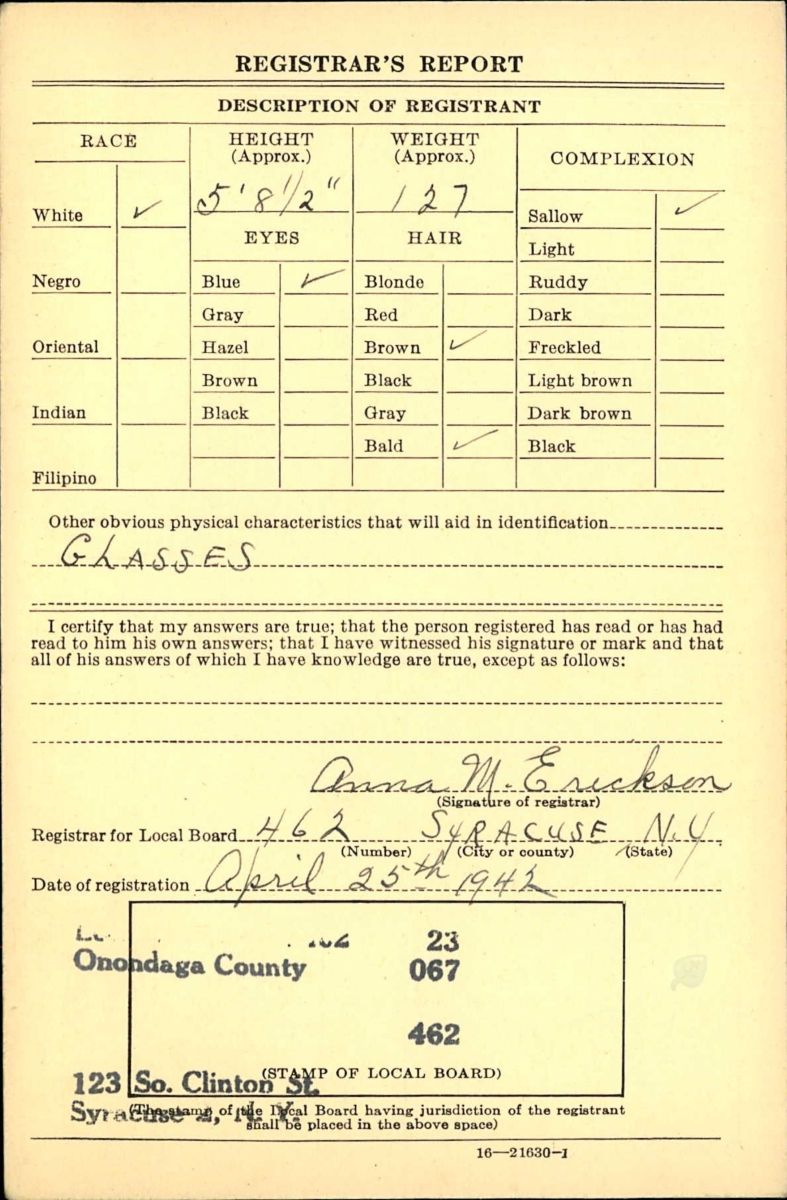 REGISTRAR'S REPORT
DESCRIPTION OF REGISTRANT
RACE
HEIGHT
(Approx.)
WEIGHT
(Approx.)
COMPLEXION
White ✓
5' 8 1/2"
127
Sallow ✓
EYES
HAIR
Light
Negro
Blue ✓
Blonde
Ruddy
Gray
Red
Dark
Oriental
Hazel
Brown ✓
Freckled
Brown
Black
Light brown
Indian
Black
Gray
Dark brown
Bald ✓
Black
Filipino
Other obvious physical characteristics that will aid in identification
GLASSES
I certify that my answers are true; that the person registered has read or has had
read to him his own answers; that I have witnessed his signature or mark and that
all of his answers of which I have knowledge are true, except as follows:
Anna M. Erickson
(Signature of registrar)
Registrar for Local Board 462 SYRACUSE N.Y
(Number) (City or county) (State)
Date of registration April 25th 1942
23
Onondaga County 067
462
(STAMP OF LOCAL BOARD)
123 So. Clinton St.
Syracuse 2, N. Y.
(The stamp of the Local Board having jurisdiction of the registrant
shall be placed in the above space)
16—21630-1